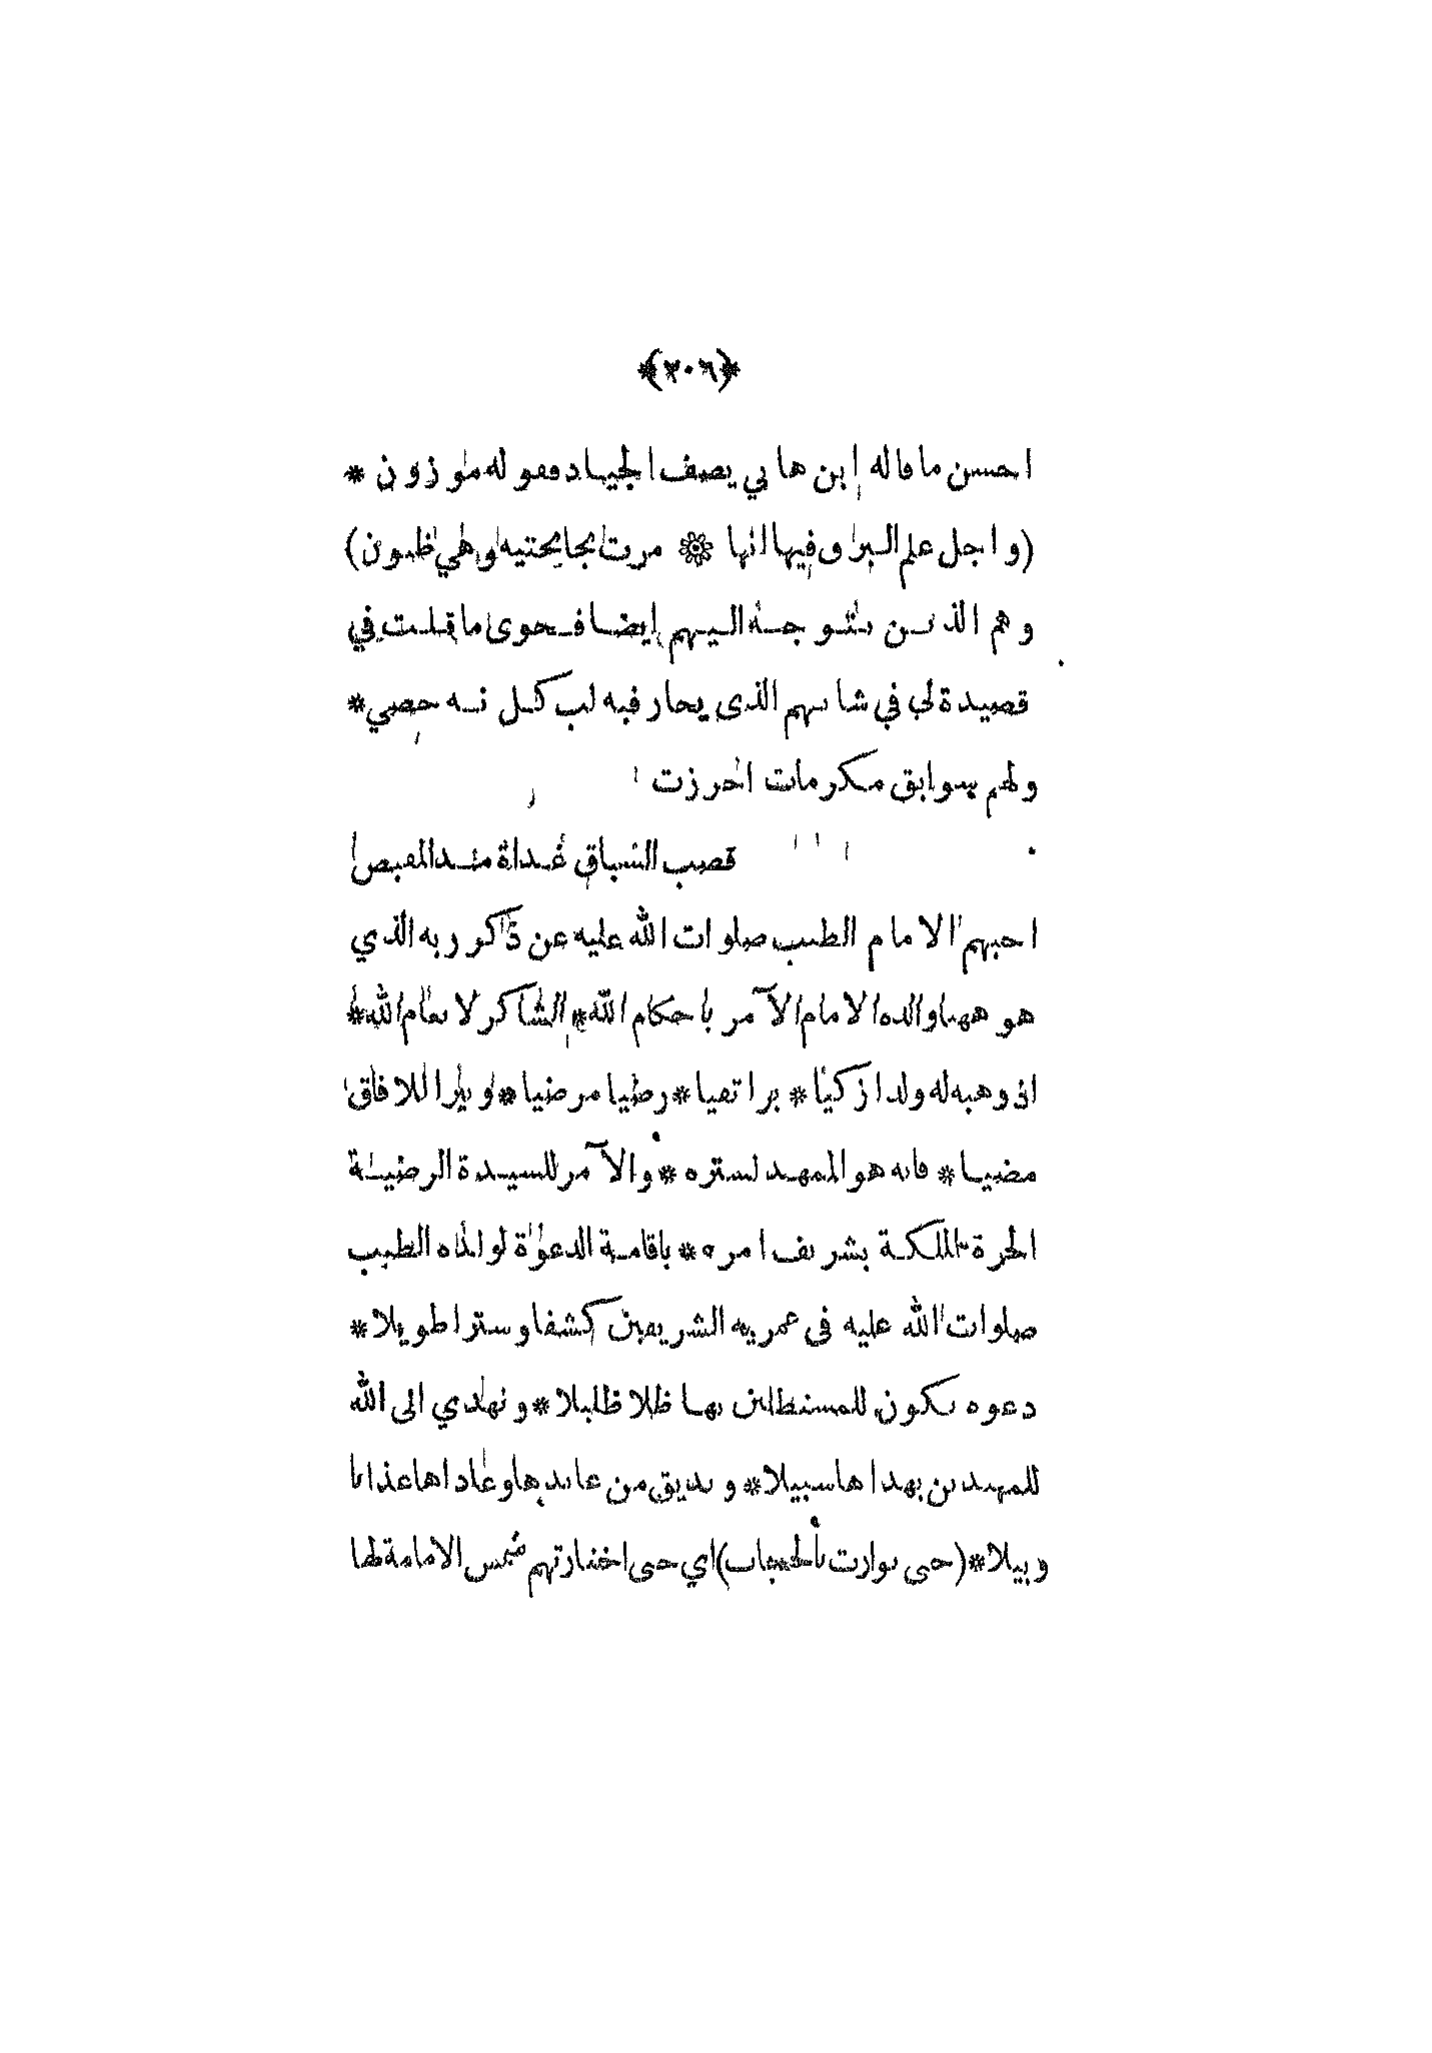 ﴿٢٠٦﴾
احسن ما قاله ابن هاني يصف الجياد فقوله موزون *
(واجل علم البرق فيها انها * مرت بجانحتيه وهي ظنون)
وهم الذين يتوجه اليهم ايضا فحوى ما قلت في
قصيدة لي في شانهم الذى يحار فيه لب كل نه حصي *
ولهم سوابق مكرمات احرزت
قصب السباق غداة مند المقبص
احبهم الامام الطيب صلوات الله عليه عن ذكر ربه الذي
هو ههنا والده الامام الآمر باحكام الله * الشاكر لانعام الله *
اذ وهبه له ولدا زكيا * برا تقيا * رضيا مرضيا * ونيرا للافاق
مضيا * فانه هو الممهد لستره * والآمر للسيدة الرضية
الحرة الملكة بشريف امره * باقامة الدعوة لولده الطيب
صلوات الله عليه فى عمريه الشريفين كشفا وسترا طويلا *
دعوه تكون للمستظلين بها ظلا ظليلا * وتهدي الى الله
للمهتدين بهداها سبيلا * وتذيق من عاندها وعاداها عذابا
وبيلا * (حتى توارت بالحجاب) اي حتى اختارتهم شمس الامامة لها